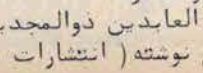 العابدین ذوالمجد
نوشته ( انتشارات